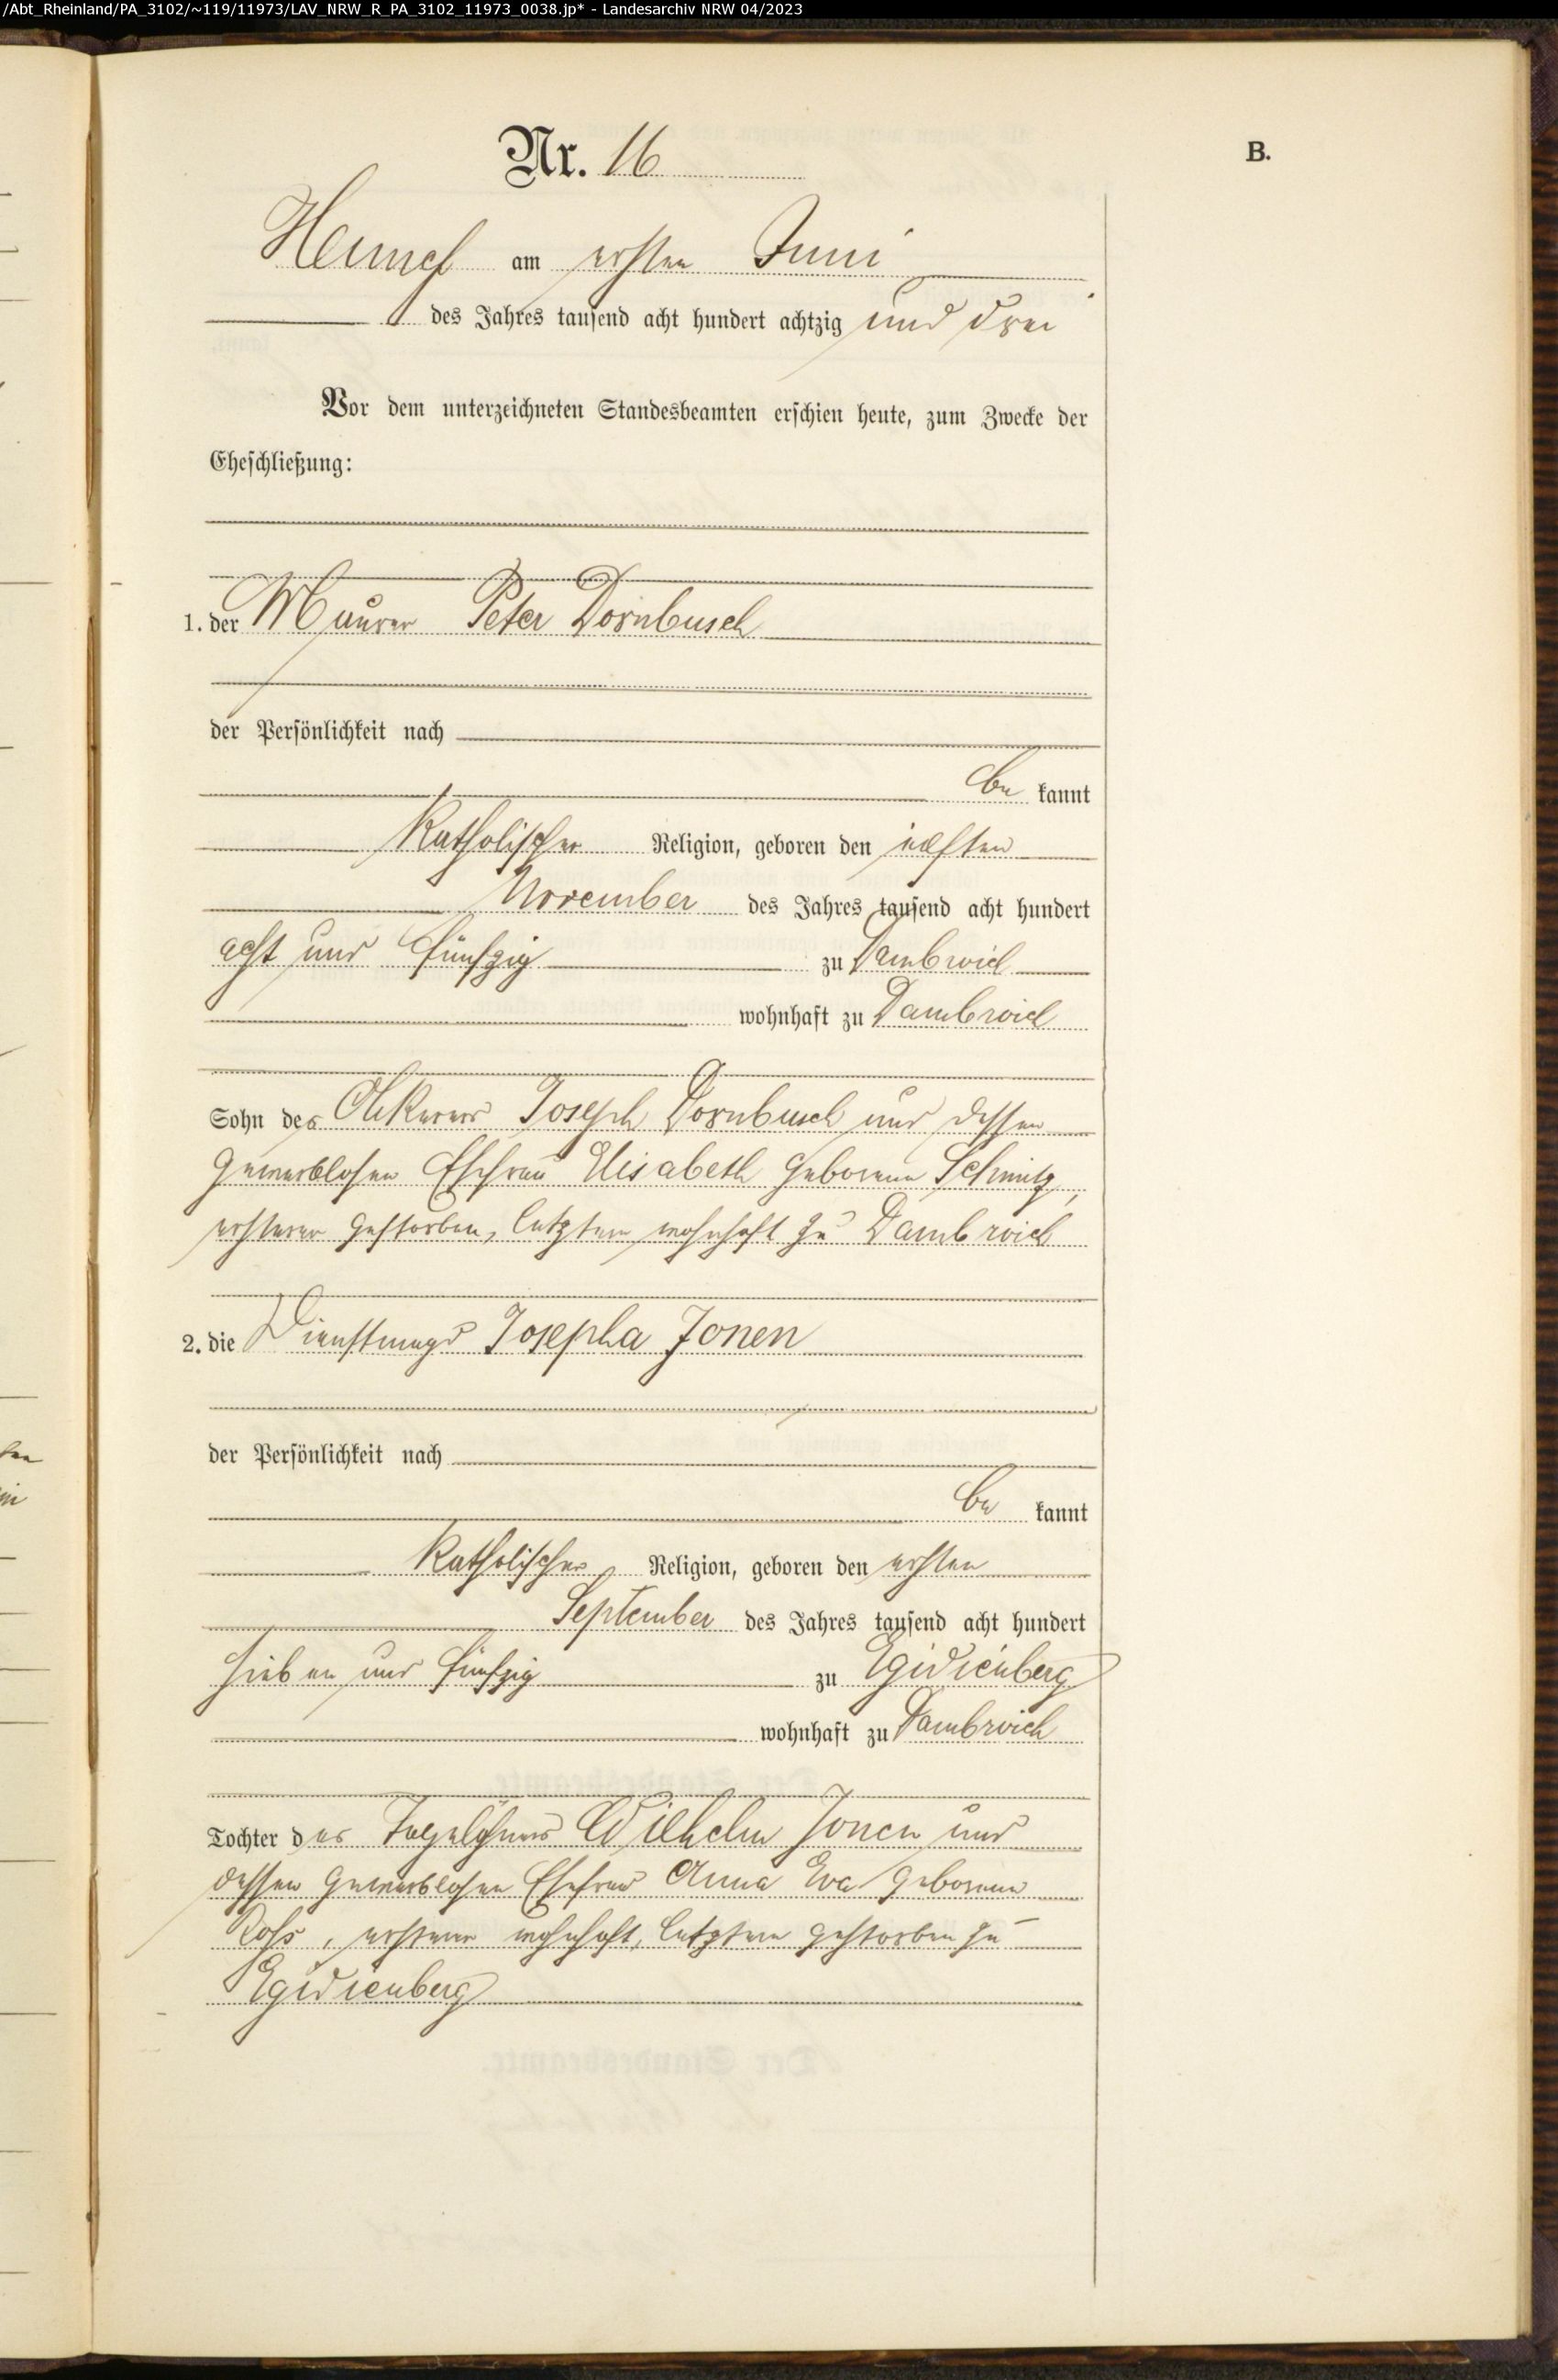 /Abt_Rheinland/PA_3102/~119/11973/LAV_NRW_R_PA_3102_11973_0038.jp* - Landesarchiv NRW 04/2023
B.
Nr. 16
Hennef am ersten Juni
des Jahres tausend acht hundert achtzig und drei
Vor dem unterzeichneten Standesbeamten erschien heute, zum Zwecke der
Eheschließung:
1. der Maurer Peter Dornbusch
der Persönlichkeit nach
be kannt
Katholischer Religion, geboren den elften
November des Jahres tausend acht hundert
acht und fünfzig zu Dambroich
wohnhaft zu Dambroich
Sohn des Ackerers Joseph Dornbusch und dessen
gewerblosen Ehefrau Elisabeth geborene Schmitz,
ersterer gestorben, letztere wohnhaft zu Dambroich
2. die Dienstmagd Josepha Jonen
der Persönlichkeit nach
be kannt
Katholischer Religion, geboren den ersten
September des Jahres tausend acht hundert
sieben und fünfzig zu Egidienberg
wohnhaft zu Dambroich
Tochter des Tagelöhners Wilhelm Jonen und
dessen gewerblosen Ehefrau Anna Eva geborene
ersterer wohnhaft, letztere gestorben zu
Egidienberg